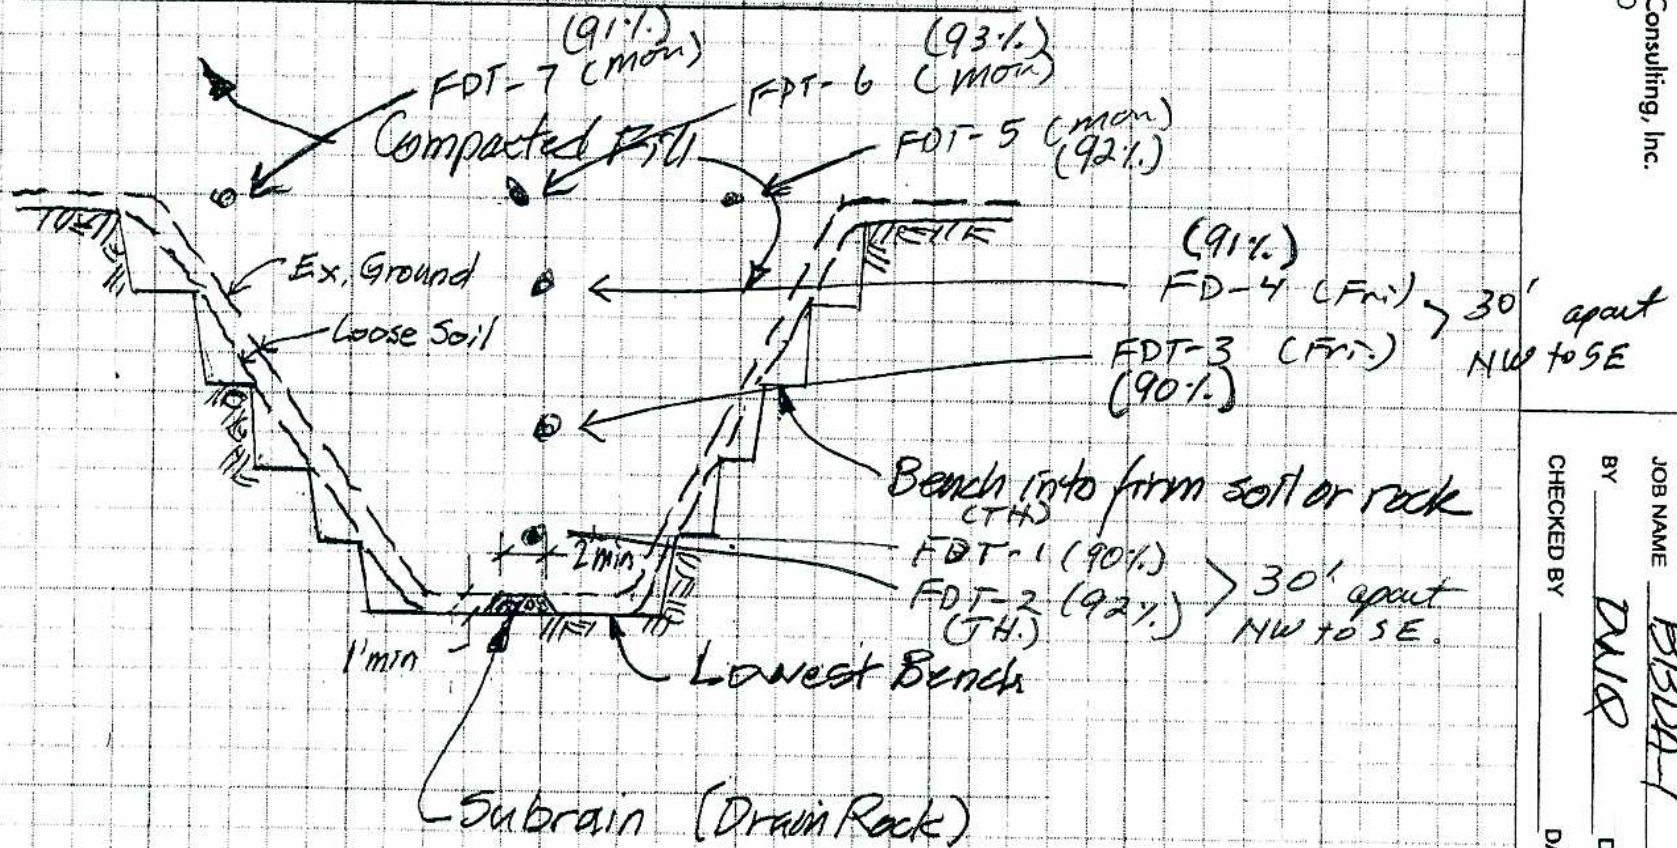 (91%)
FDT-7 (mon)
(93%)
FDT-6 (mon)
Compacted Fill
FDT-5 (mon)
(92%)
Ex. Ground
Loose Soil
(91%)
FD-4 (Fri)
30' apart
NW to SE
FDT-3 (Fri.)
(90%)
Bench into firm soil or rock
(TH)
FDT-1 (90%)
FDT-2 (92%)
(TH.)
30' apart
NW to SE.
2' min
1' min
Lowest Bench
Subrain (Drain Rock)
Consulting, Inc.
JOB NAME
BY
CHECKED BY